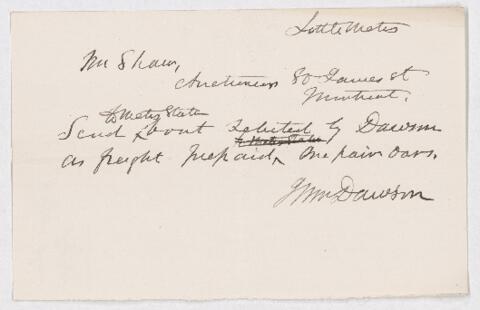 Little Metis
Mr Shaw,
Auctioneer 80 James St
Montreal.
to Metis Station
Send boat selected by Dawson
to Metis Station
as freight prepaid, One pair oars.
J Wm Dawson